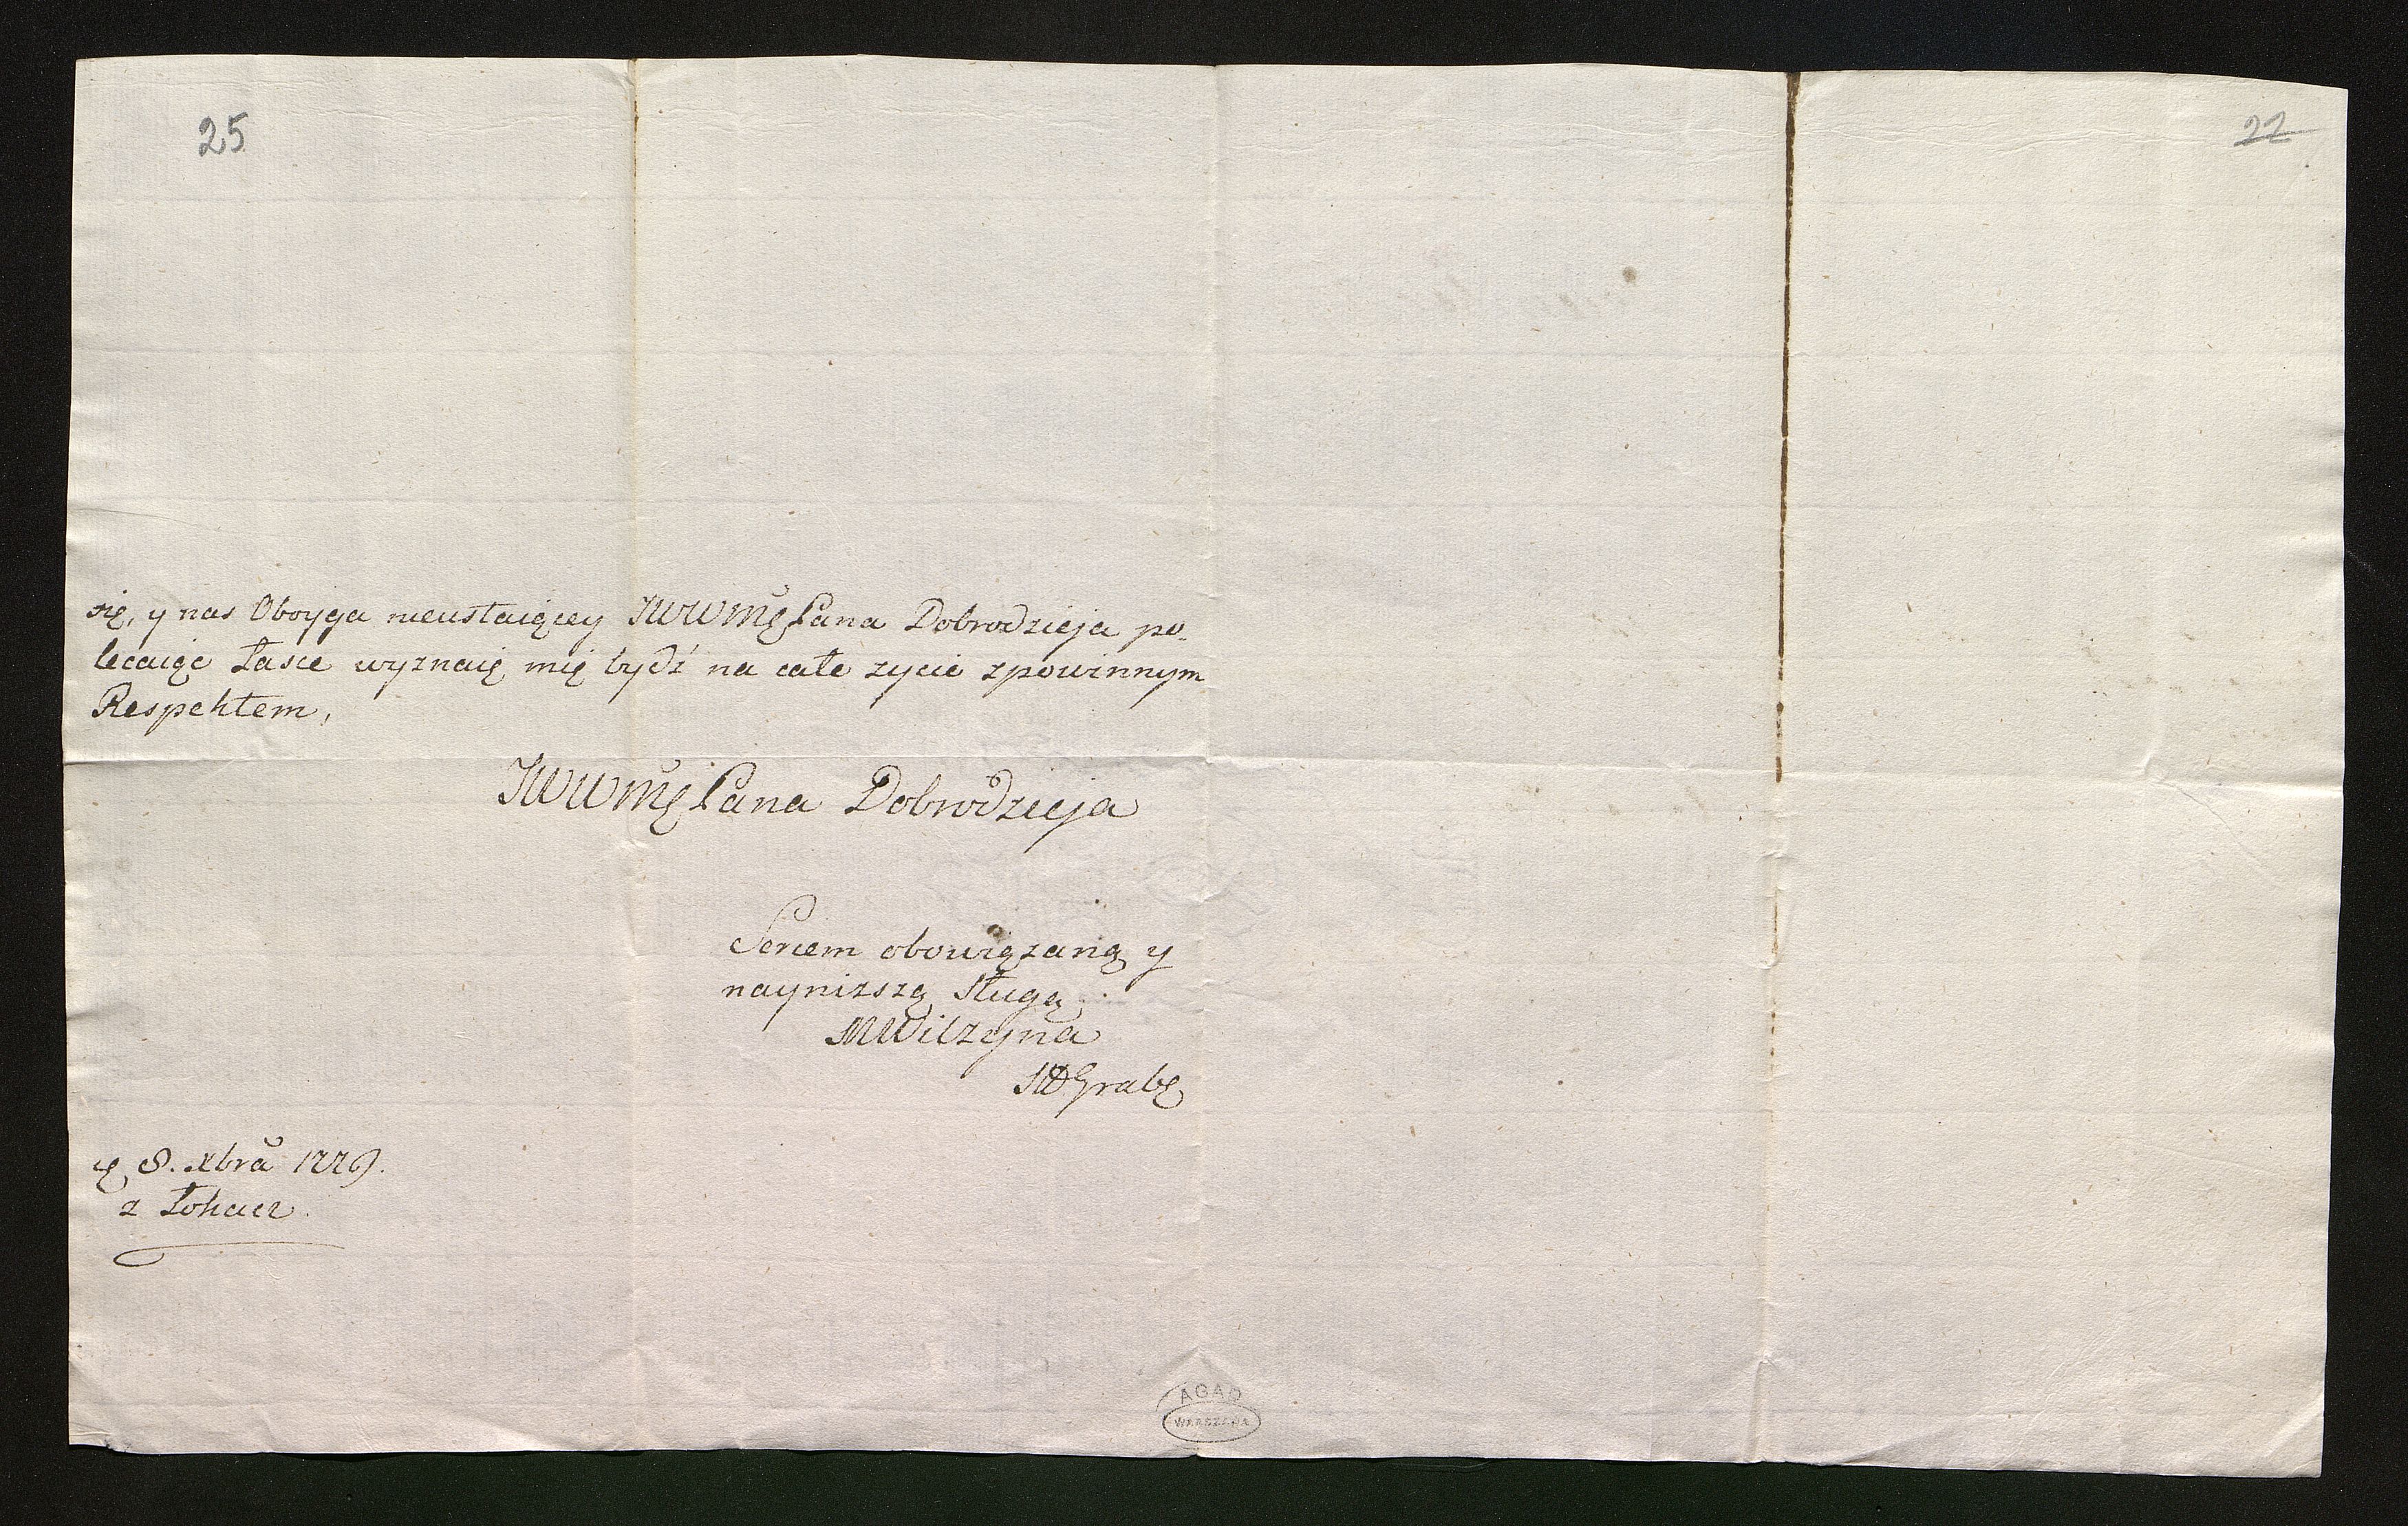 25
22
się, y nas Oboyga nieustaiącey JWWMę Pana Dobrodzieja po-
lecaiąc łasce wyznaię mię bydź na całe zycie zpowinnym
Respektem,
JWWMę Pana Dobrodzieja
Sercem obowiązaną y
nayniższą sługą
MWilzyna
Grabę
8. Xbra 1779.
z Łohacz
AGAD
WARSZAWA